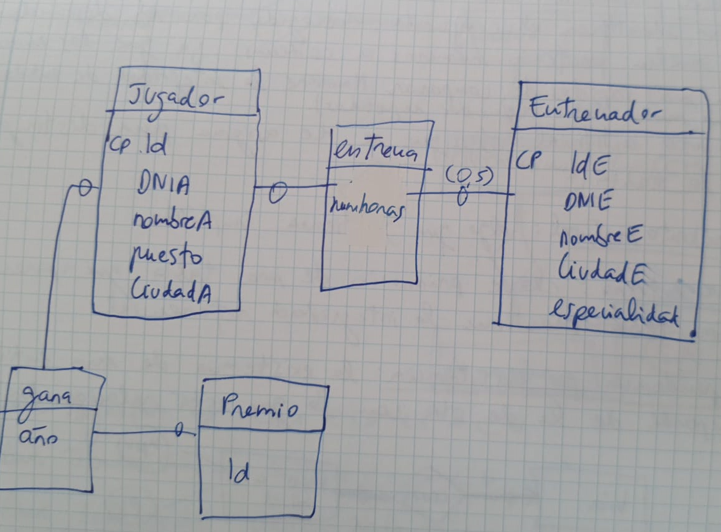 Jugador
CP Id
DNIA
nombreA
puesto
CiudadA
entrena
numhoras
(0,5)
Entrenador
CP IdE
DNIE
nombreE
CiudadE
especialidad
gana
año
Premio
Id